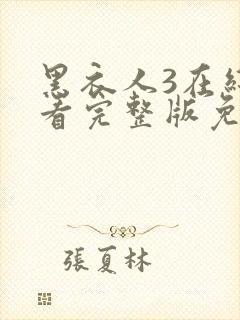 黑衣人3在線
看完整版免
張夏林